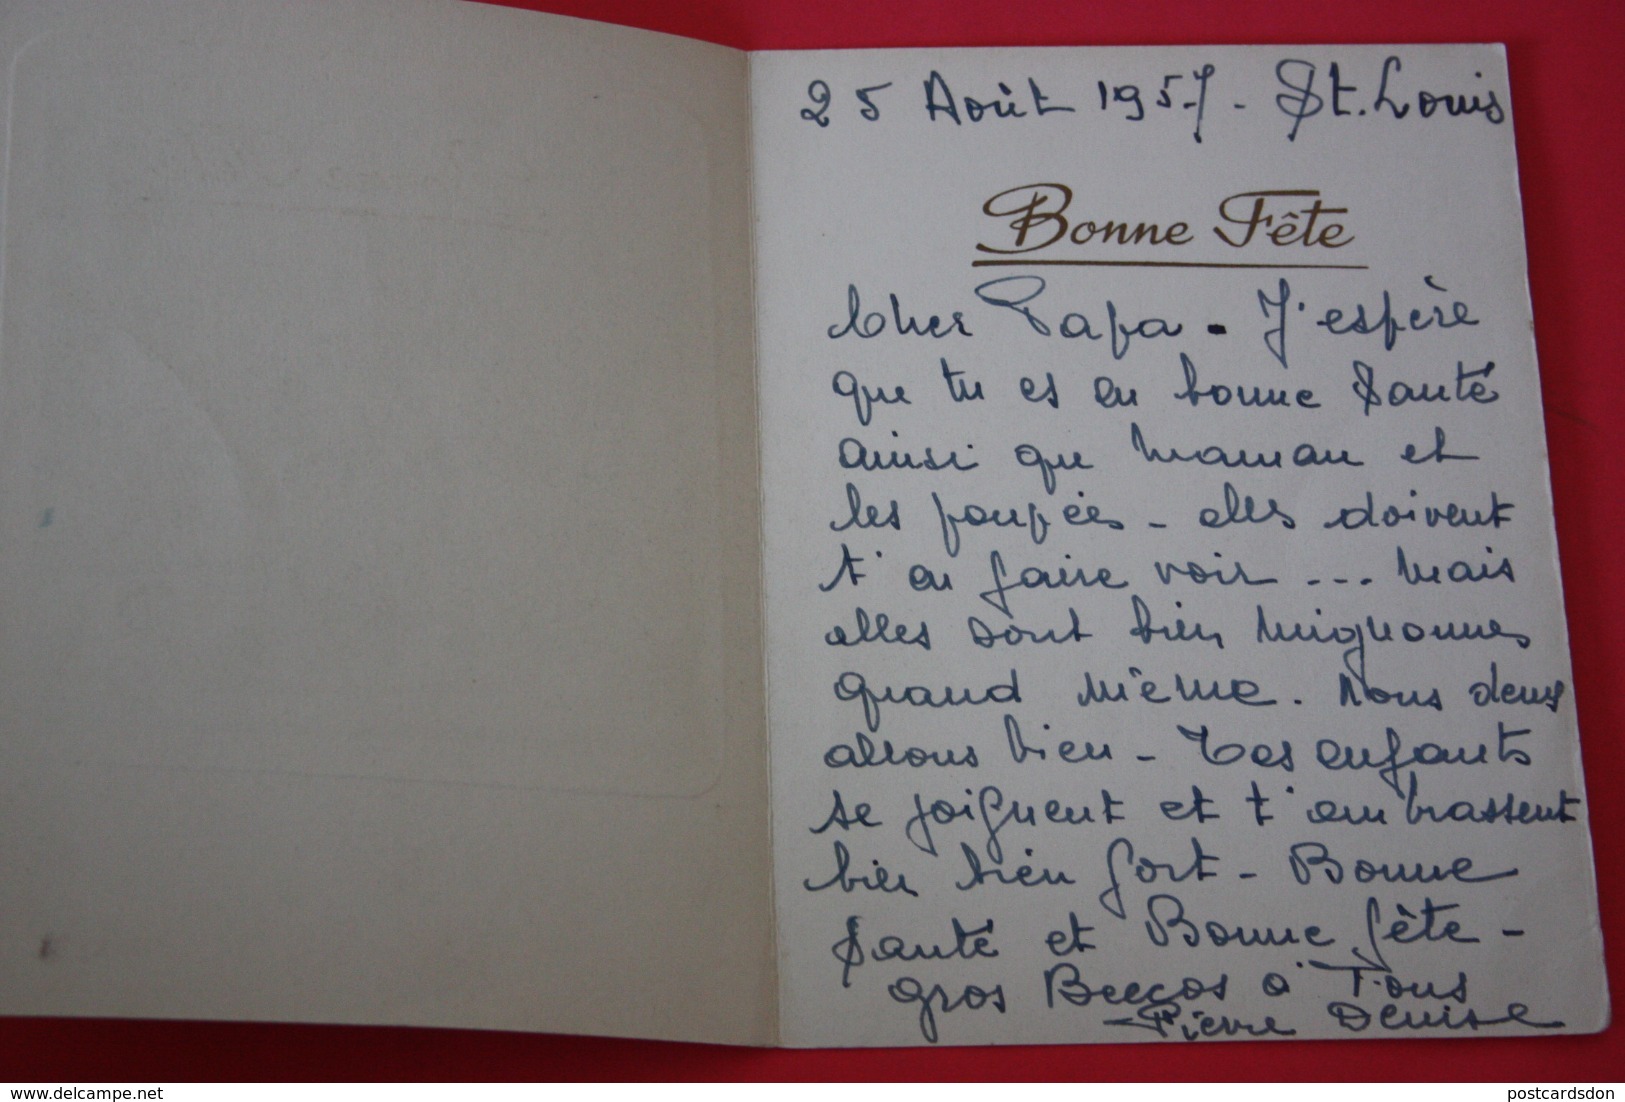 25 Août 1957 - St. Louis
Bonne Fête
Cher Papa - J'espère
que tu es en bonne Santé
ainsi que Maman et
les poupées - elles doivent
t'en faire voir ... Mais
elles sont bien mignonnes
quand même. Nous deux
allons bien - Tes enfants
se joignent et t'embrassent
bien bien fort - Bonne
Santé et Bonne fête -
gros à Tous
Pierre Denise
delcampe.net
postcardsdon